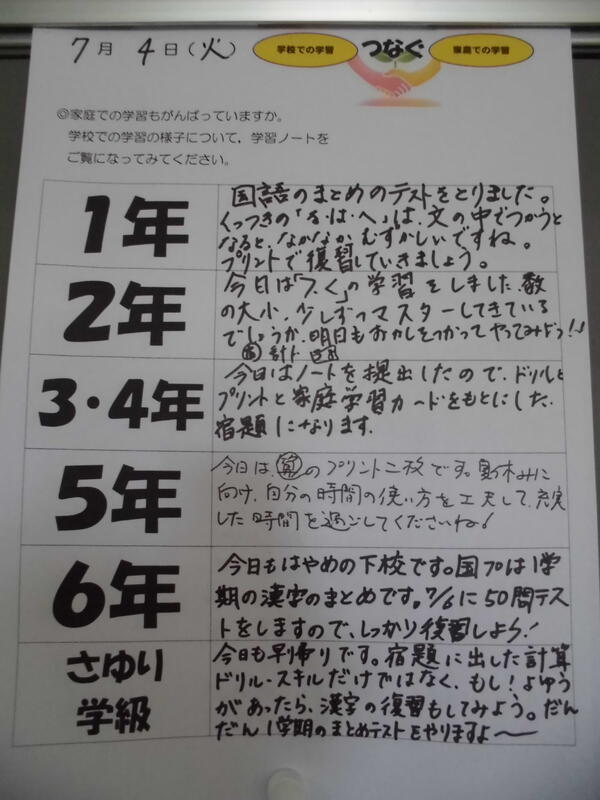 7月 4日(火)
学校での学習 つなぐ 家庭での学習
◎家庭での学習もがんばっていますか。
学校での学習の様子について,学習ノートを
ご覧になってみてください。
1年
国語のまとめのテストをとりました。
くっつきの「を・は・へ」は、文の中でつかうと
なると、なかなかむずかしいですね。
プリントで復習していきましょう。
2年
今日は「>、<」の学習をしました。数
の大小、少しずつマスターしてきている
でしょうか。明日もおかしをつかってやってみよう!!
3・4年
計ド
今日はノートを提出したので、ドリルと
プリントと家庭学習カードをもとにした
宿題になります。
5年
今日は、算のプリント二枚です。夏休みに
向け、自分の時間の使い方を工夫して、充実
した時間を過ごしてくださいね!
6年
今日もはやめの下校です。国プは1学
期の漢字のまとめです。7/6に50問テス
トをしますので、しっかり復習しよう!
さゆり
学級
今日も早帰りです。宿題に出した計算
ドリル・スキルだけではなく、もし!よゆう
があったら、漢字の復習もしてみよう。だん
だん1学期のまとめテストをやりますよ〜